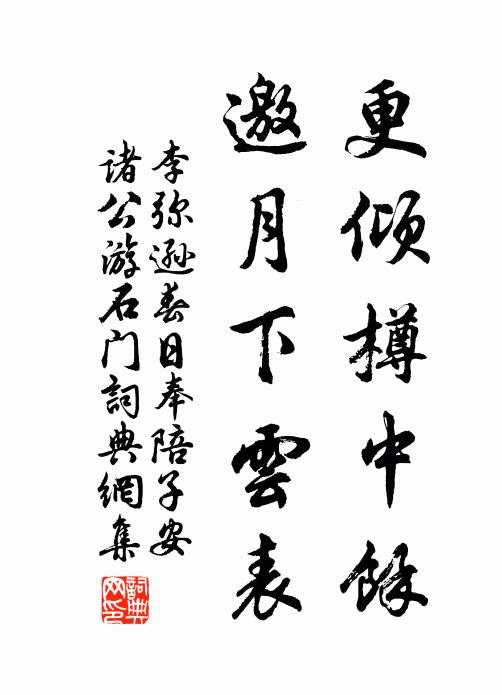 更傾樽中餘
邀月下雲表
李弥遜春日奉陪子安
諸公游石门詞典網集
詞典网印